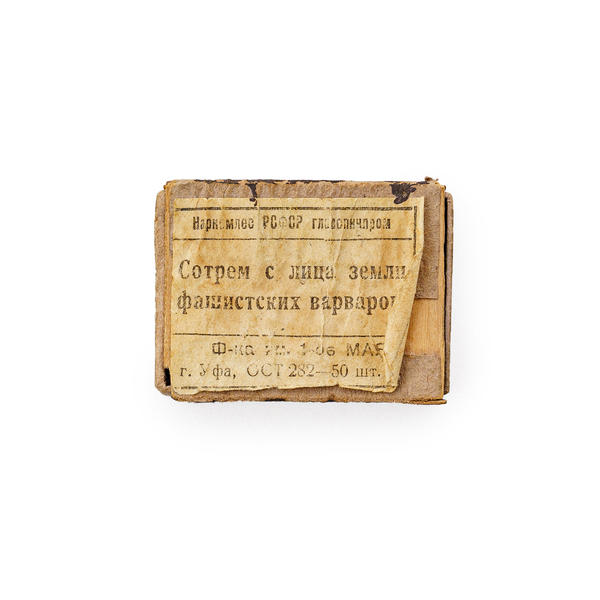 Наркомлес РСФСР главспичпром
Сотрем с лица земли
фашистских варваров
Ф-ка им. 1-ое МАЯ
г. Уфа, ОСТ 282—50 шт.